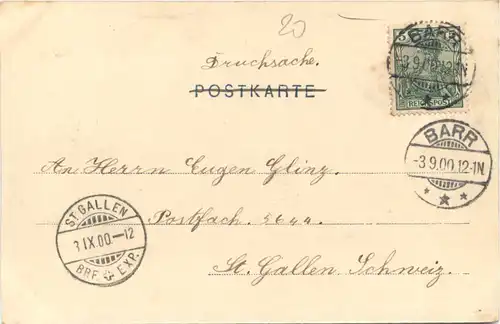 20
Drucksache.
POSTKARTE
5
REICHSPOST
BARR
-3.9.00.12-1N
BARR
-3.9.00.12-1N
An Herrn Eugen Glinz.
Postfach. 2644.
St. Gallen. Schweiz.
ST. GALLEN
3.IX.00.—12
BRF. EXP.